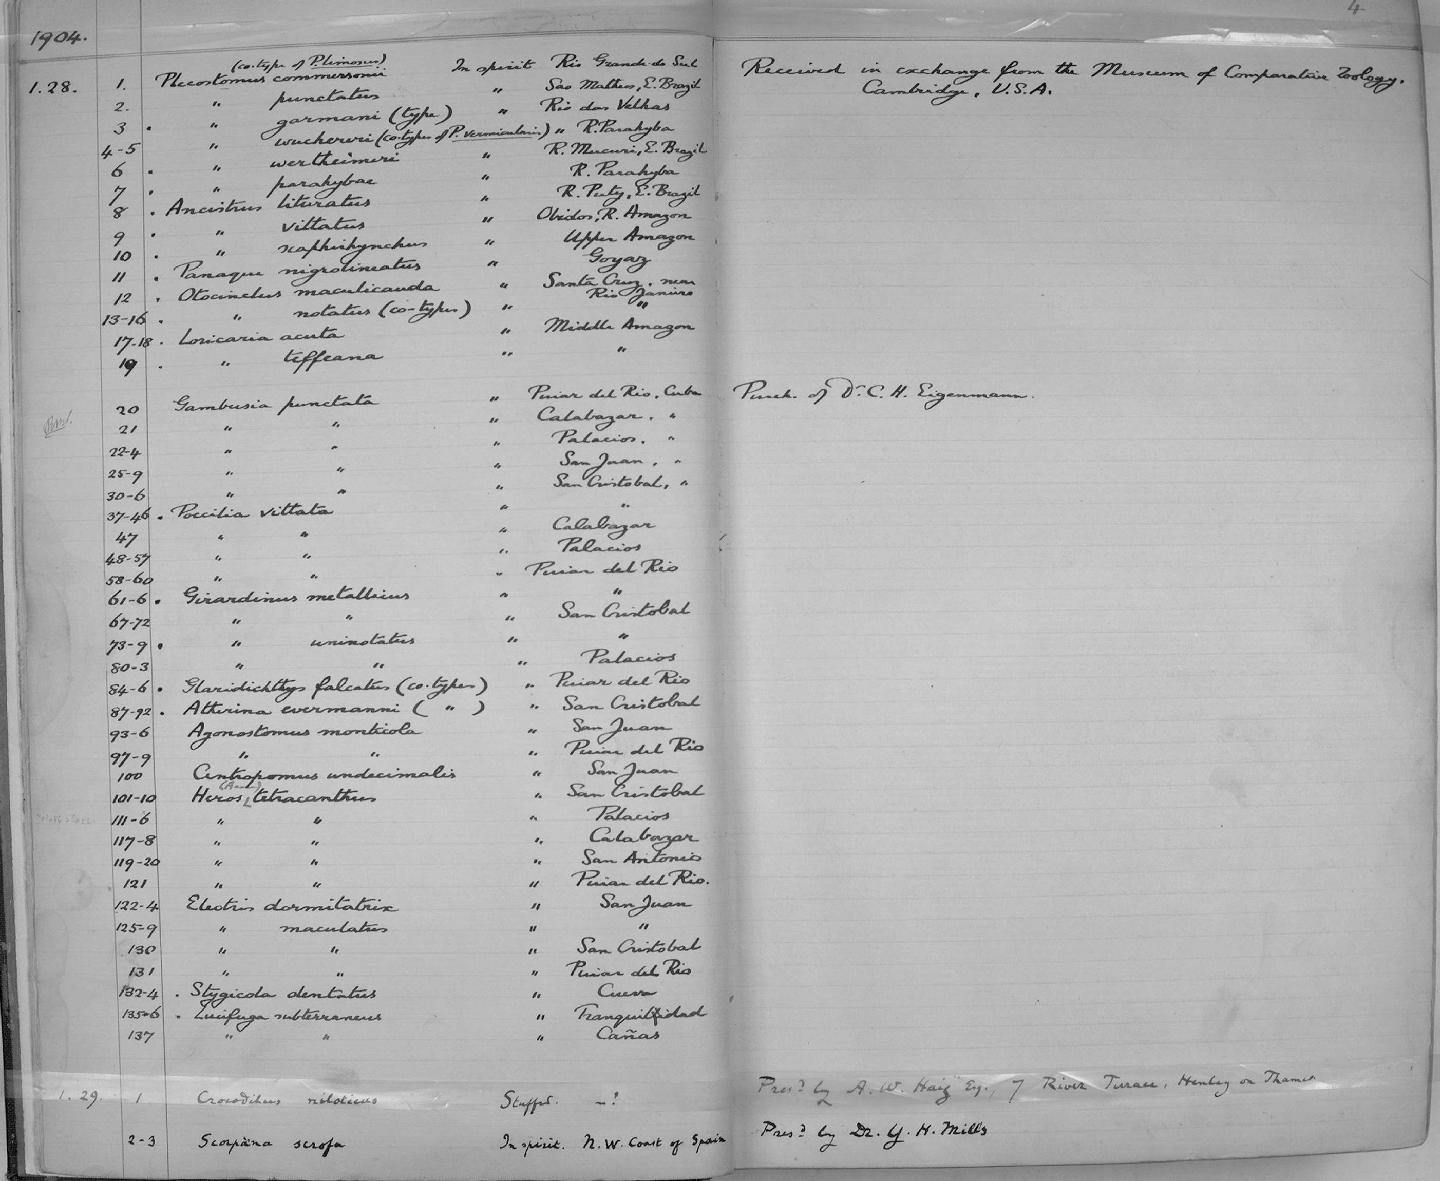 4
1904.
(co-type of P. limosus)
1.28. 1. Plecostomus commersonii In spirit Rio Grande do Sul Received in exchange from the Museum of Comparative Zoology,
Cambridge, U.S.A.
2. " punctatus " Sao Matheos, E. Brazil
3 . " garmani (type) " Rio das Velhas
4-5 " wuchereri (co-types of P. vermicularis) " R. Parahyba
6 . " wertheimeri " R. Mucuri, E. Brazil
7 . " parahybae " R. Parahyba
8 . Ancistrus lituratus " R. Puty, E. Brazil
9 . " vittatus " Obidos, R. Amazon
10 . " scaphirhynchus " Upper Amazon
11 . Panaque nigrolineatus " Goyaz
12 . Otocinclus maculicauda " Santa Cruz, near
Rio Janiero
13-16 . " notatus (co-types) " "
17-18 . Loricaria acuta " Middle Amazon
19 . " teffeana " "
20 Gambusia punctata " Pinar del Rio, Cuba Purch. of Dr. C. H. Eigenmann.
21 " " " Calabazar, "
22-4 " " " Palacios, "
25-9 " " " San Juan, "
30-6 " " " San Cristobal, "
37-46 . Poecilia vittata " "
47 " " " Calabazar
48-57 " " " Palacios
58-60 " " " Pinar del Rio
61-6 . Girardinus metallicus " "
67-72 " " " San Cristobal
73-9 . " uninotatus " "
80-3 " " " Palacios
84-6 . Glaridichthys falcatus (co-types) " Pinar del Rio
87-92 . Atherina evermanni ( " ) " San Cristobal
93-6 Agonostomus monticola " San Juan
97-9 " " " Pinar del Rio
100 Centropomus undecimalis " San Juan
101-10 Heros tetracanthus " San Cristobal
111-6 " " " Palacios
117-8 " " " Calabazar
119-20 " " " San Antonio
121 " " " Pinar del Rio.
122-4 Eleotris dormitatrix " San Juan
125-9 " maculatus " "
130 " " " San Cristobal
131 " " " Pinar del Rio
132-4 . Stygicola dentatus " Cueva
135-6 . Lucifuga subterraneus " Tranquilidad
137 " " " Cañas
1.29. 1 Crocodilus niloticus Stuffed. —? Presd by A. W. Haig Esq., 7 River Terrace, Henley on Thames
2-3 Scorpæna scrofa In spirit. N.W. Coast of Spain Presd by Dr. Y. H. Mills